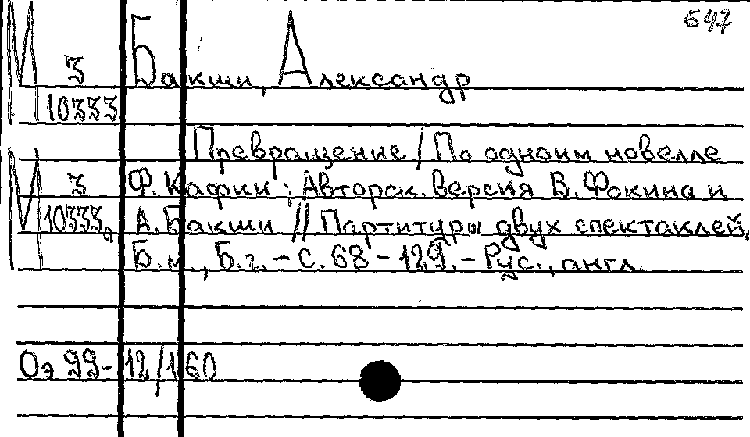 647
М 3 Бакши, Александр
10333
Превращение / По одноим. новелле
М 3 Ф. Кафки; Авторск. версия В. Фокина и
10333а А. Бакши // Партитуры двух спектаклей,
Б.м., Б.г. - С. 68 - 129. - Рус., англ.
Оэ 99-12/160